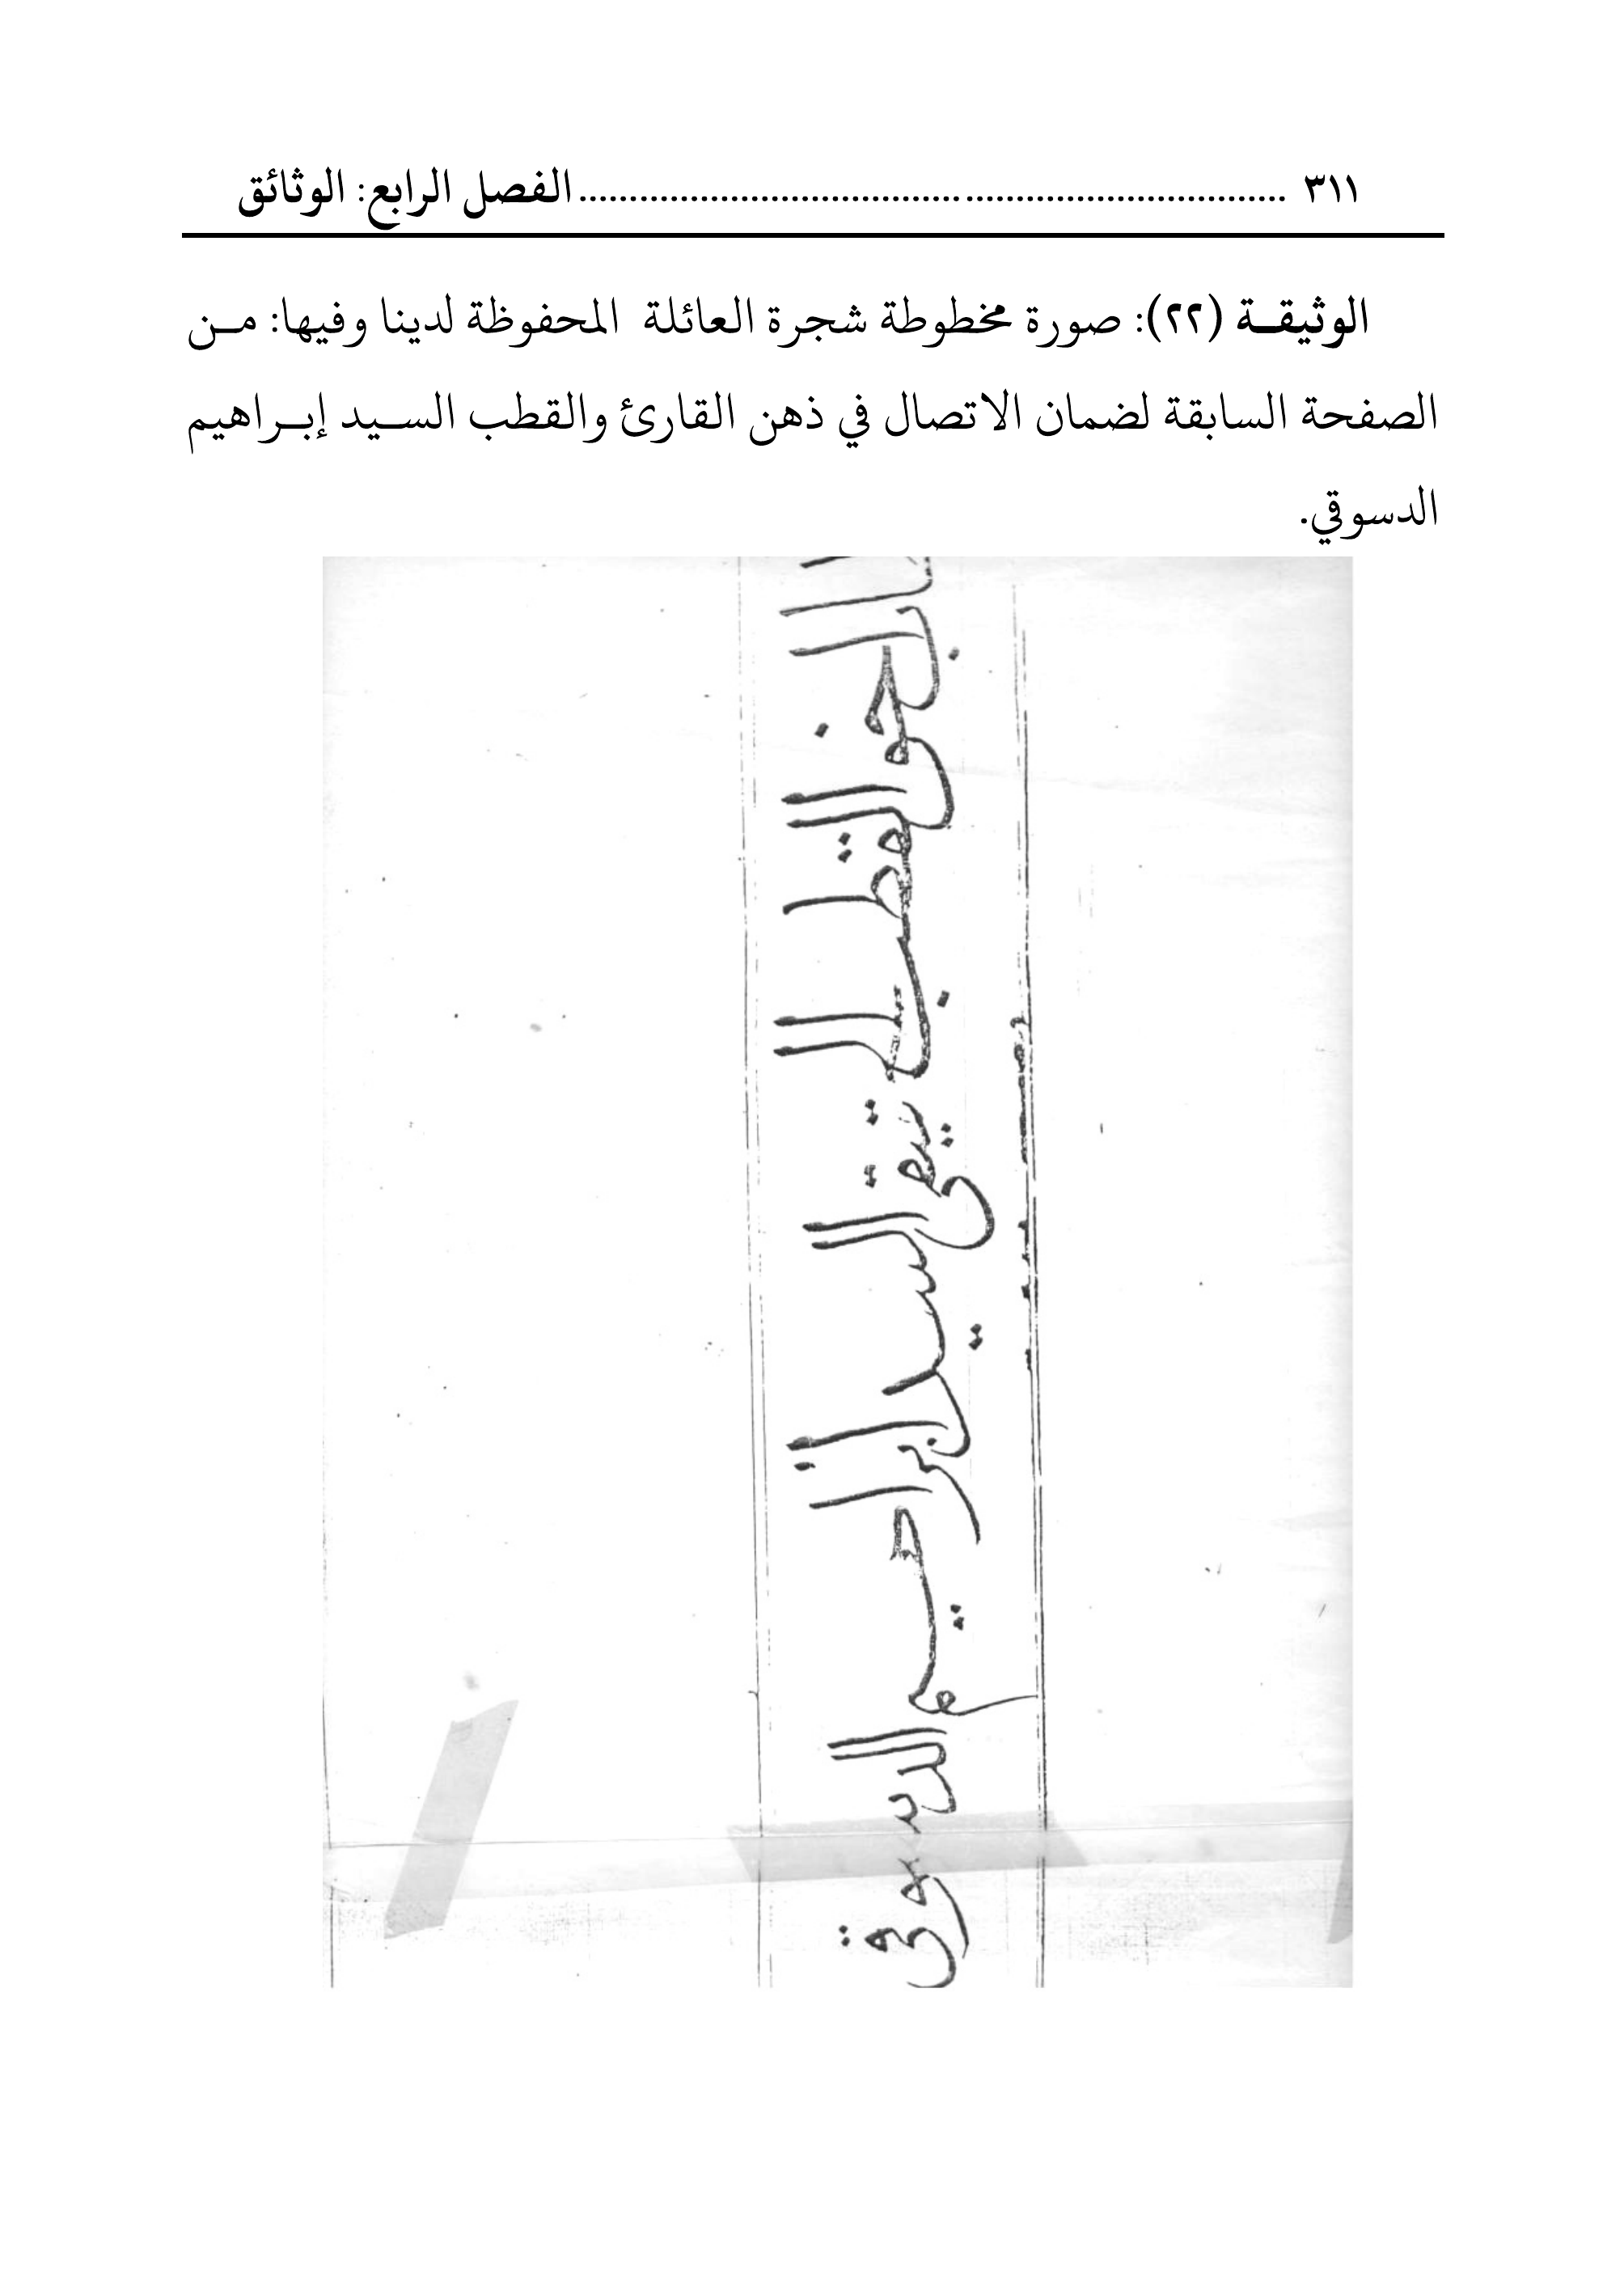 ٣١١ ........................................................................ الفصل الرابع: الوثائق
الوثيقـة (٢٢): صورة مخطوطة شجرة العائلة المحفوظة لدينا وفيها: مـن
الصفحة السابقة لضمان الاتصال في ذهن القارئ والقطب السـيد إبـراهيم
الدسوقي.
القطب السيد ابراهيم الدسوقى